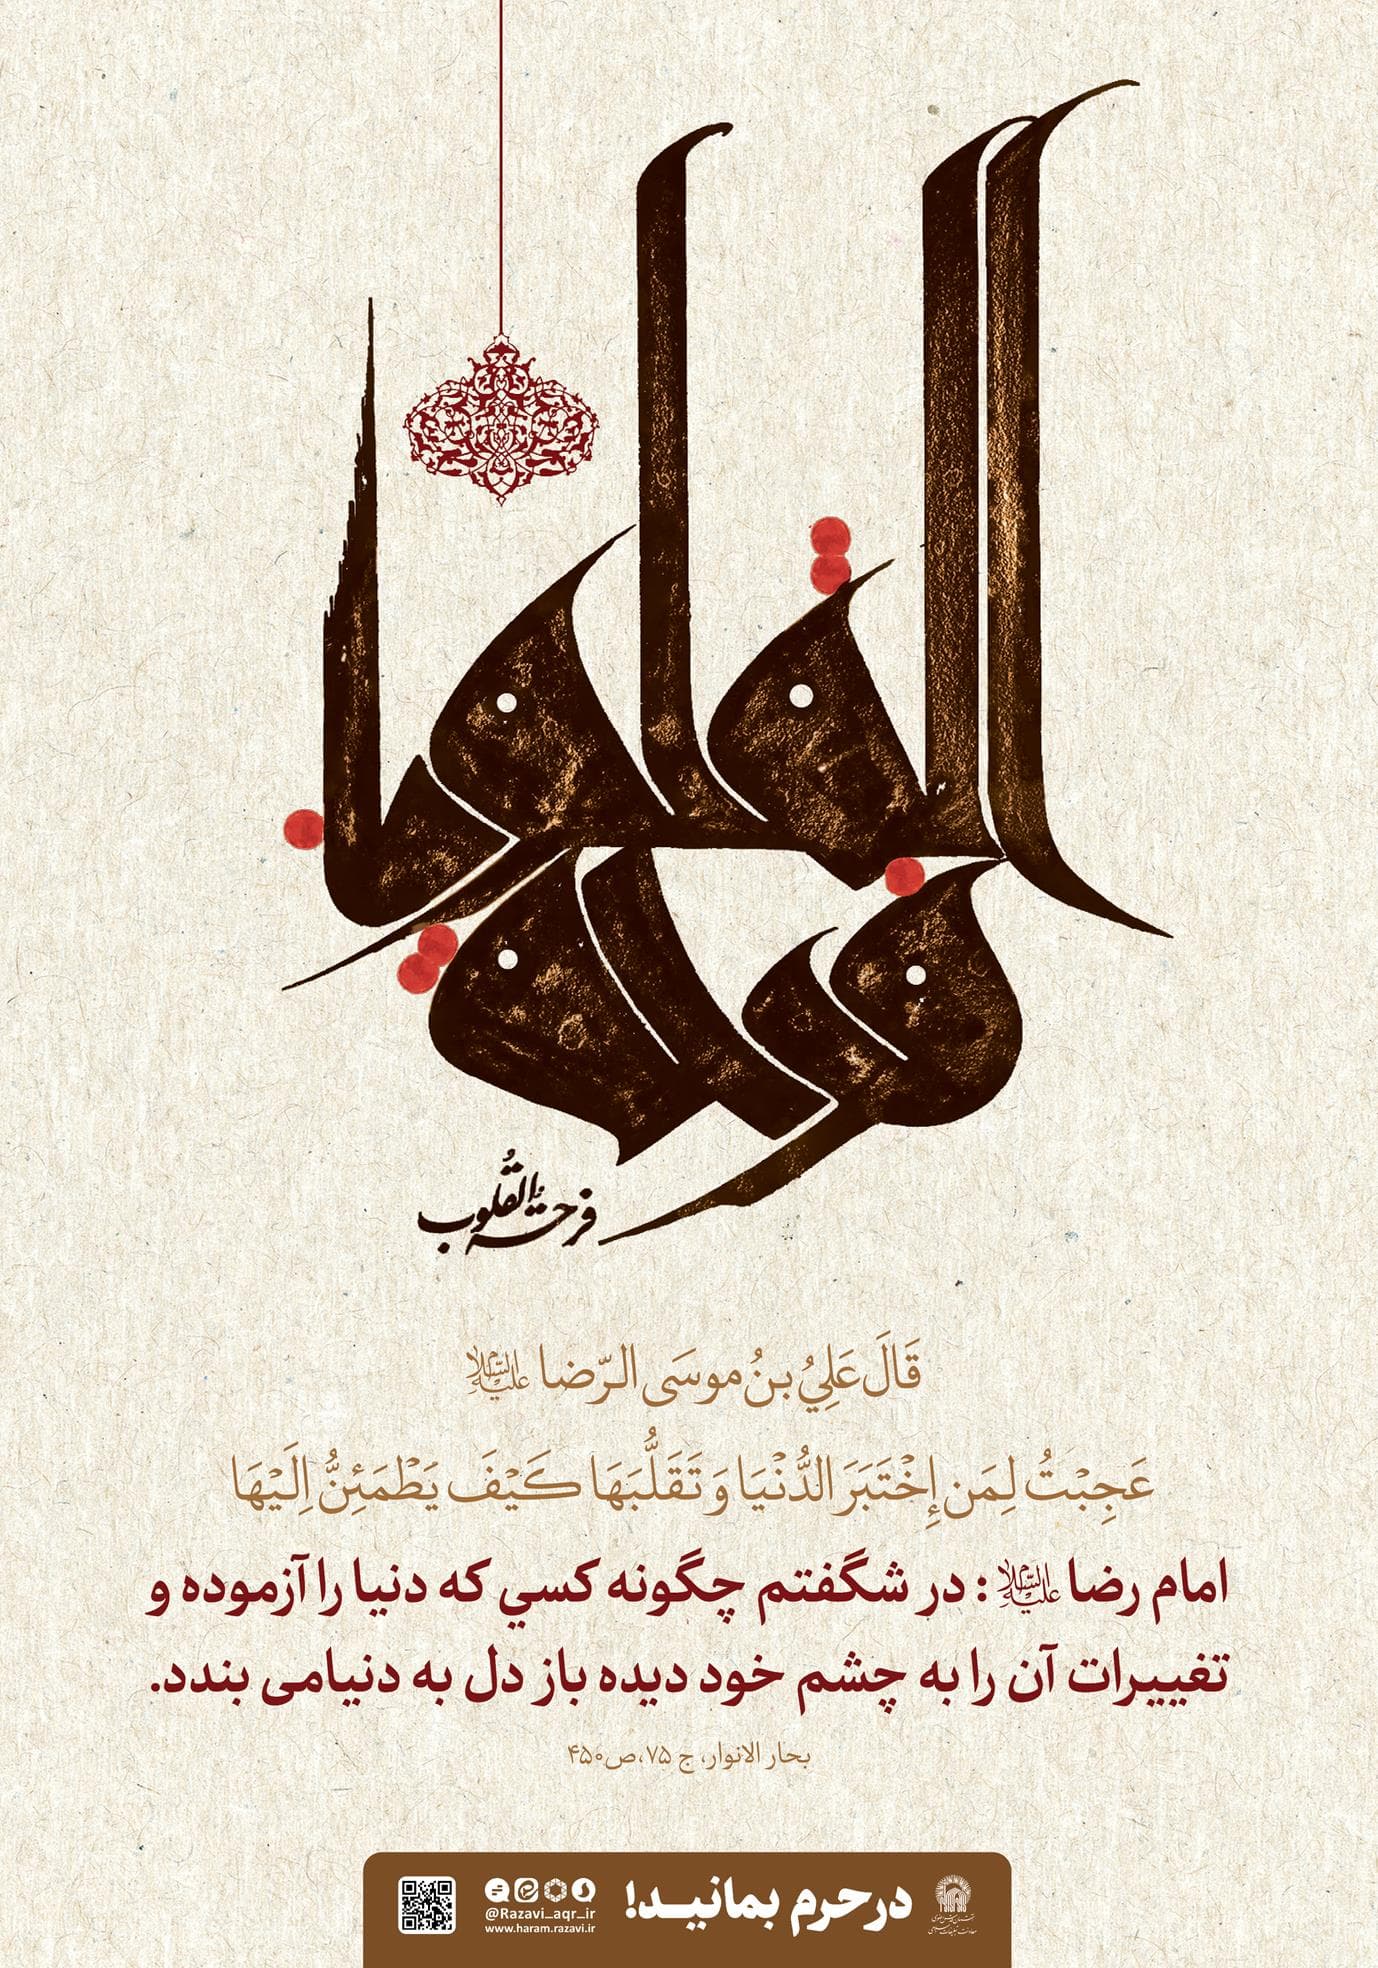 فرحة القلوب
فرحة القلوب
قَالَ عَلِيُ بنُ موسَی الرّضا علیه‌السلام
عَجِبْتُ لِمَن إِخْتَبَرَ الدُّنْيَا وَ تَقَلُّبَهَا كَيْفَ يَطْمَئِنُّ إِلَيْهَا
امام رضا علیه‌السلام : در شگفتم چگونه كسي كه دنیا را آزموده و
تغییرات آن را به چشم خود دیده باز دل به دنیامی بندد.
بحار الانوار، ج ۷۵،ص۴۵۰
درحرم بمانید!
@Razavi_aqr_ir
www.haram.razavi.ir